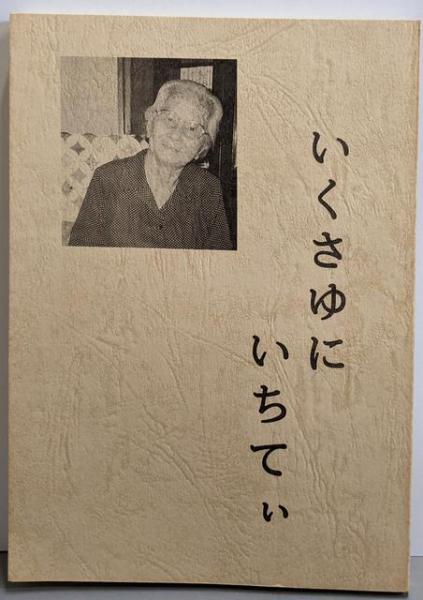 いくさゆに
いちてぃ